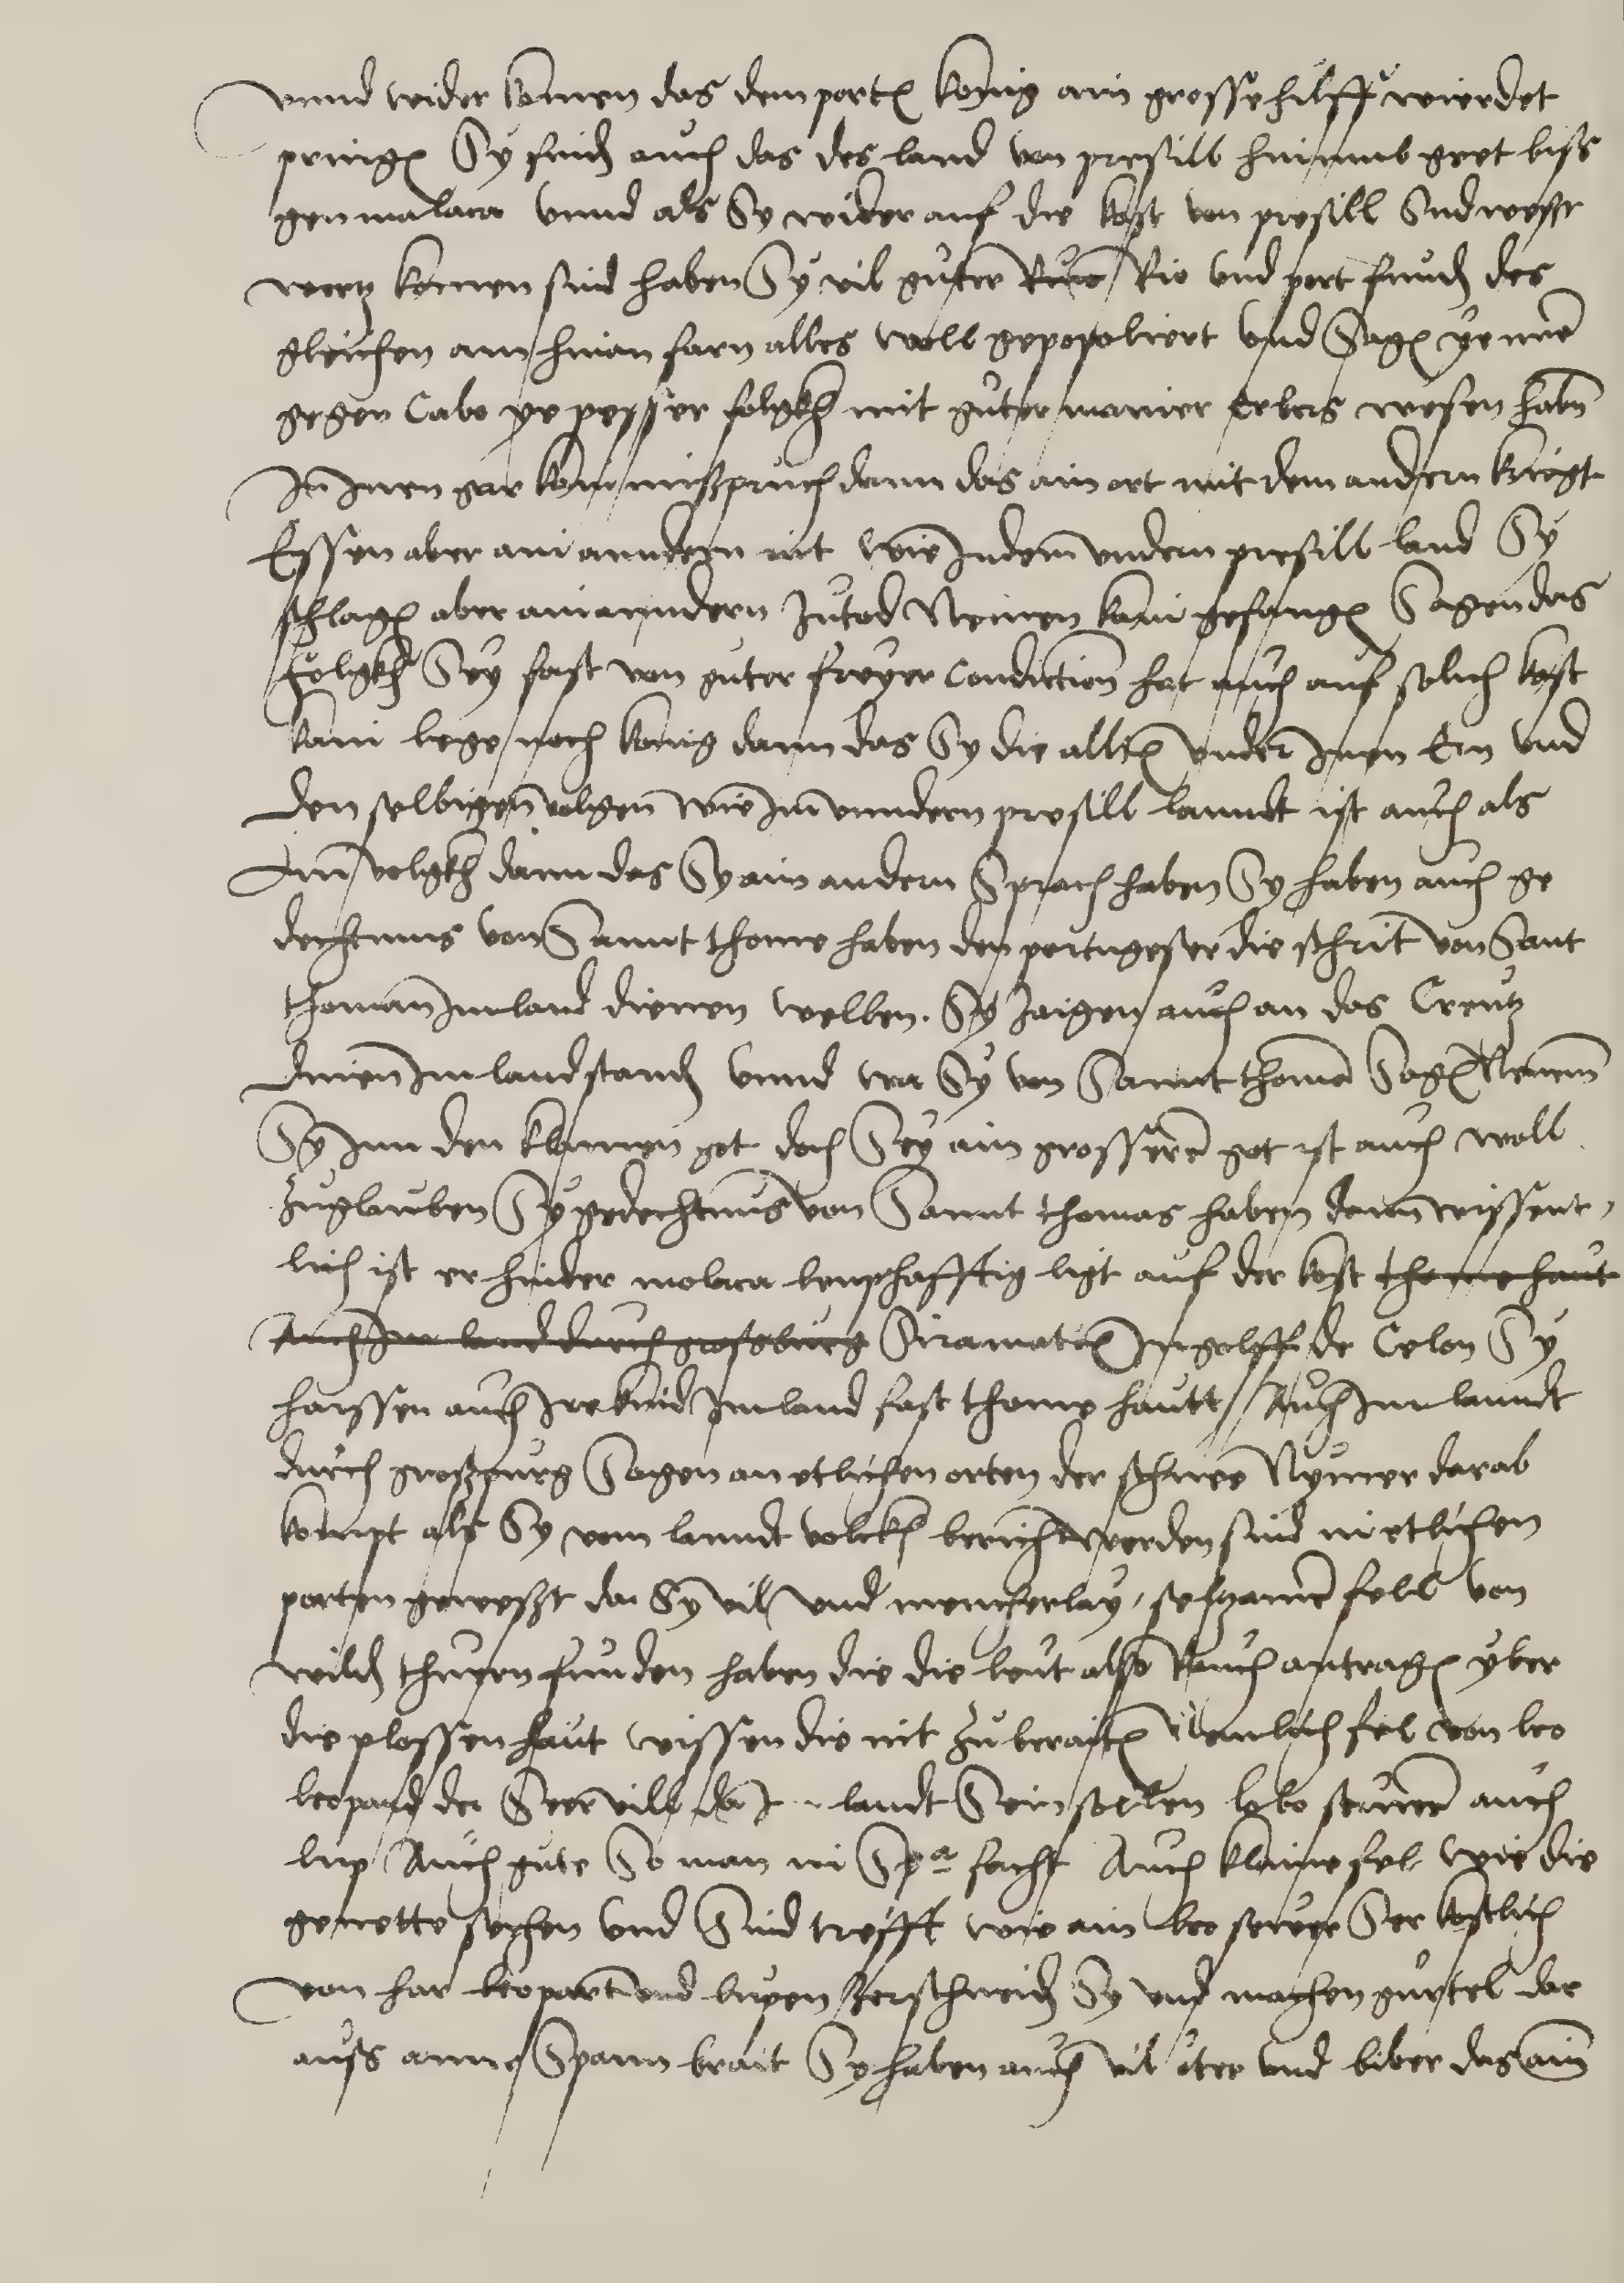 vnnd wider komen das dem port(en) konig ain grosse hilff wierdet
pring(en) Sy find(en) auch das des land von presill hinumb geet biss
gen malaca vnnd als Sy wider auf die kost von presill Sudwest
wertz komen sind haben Sy vil guter Rio vnd port fund(en) des
gleichen am hinan farn alles woll gepopoliert vnd Sag(en) ye mer
gegen Cabo ye pesser folgkh mit guter manier erbers wesen habn
In Inen gar kain mißpruch dann das ain ort mit dem andern kriegt
Essen aber ain anndern nit wie In dem vndern presill land Sy
schlag(en) aber ain anndern Zutod Nemen kain gefang(en) Sagen das
folgkh Sey fast von guter freyer Condiction hat auch auf solich kost
kain lege noch konig dann das Sy die allt(en) vnder Inen Ern vnd
den selbigen volgen wie Im vnndern presill lanndt ist auch als
Ain volgkh dann das Sy ain andern Sprach haben Sy haben auch ge
dechtnus von Sannt thome haben den portugeser die schrit von Sant
thoman Im land dienen wellen. Sy Zaigen auch an das Creutz
dinen Im land stand(en) vnnd wa Sy von Sannt thome Sag(en) Nennen
Sy Inn den klainen got doch Sey ain grosserer got ist auch woll
Zuglauben Sy gedechtnus von Sannt thomas haben dann wissent,
lich ist er hinder malaca leiphafftig ligt auf der kost thome haut
Auch Im land durch grosburg Siramat(en) In golffi de Celon Sy
haissen auch Ire kind Im land fast thome hautt // Auch Im lanndt
durch großpurg Sagen an etlichen orten der schnee Nymer darab
kompt als Sy vom lanndt volckh bericht werden sind in etlichen
porten geweßt da Sy vil vnd mencherlay, selzamer fell von
wild(en) thiern funden haben die die leut also Rauch antrag(en) yber
die plossen haut wissen die nit Zu berait(en) Nemlich fel von leo
leopard der Seer vil landt Sein sollen lobo seruer auch
lup Auch gute So man in Spa facht Auch klaine fel wie die
genette sechen vnd Sind trefft wie ain leo seruer Ser kostlich
von har leopart vnd lupen Zerschneid(en) Sy vnd machen gurtel dar
auss ainer Spann brait Sy haben auch vil oter vnd biber das ain